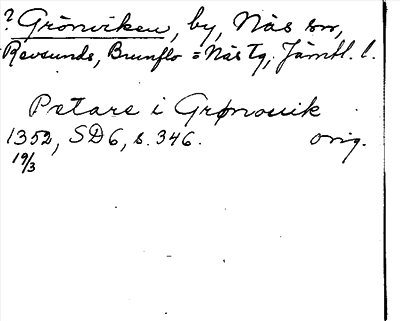 ? Grönviken, by, Näs sn,
Revsunds, Brunflo o Näs tg, Jämtl. l.
Pætare i Grønouik
1352, SD6, s. 346. orig.
19/3